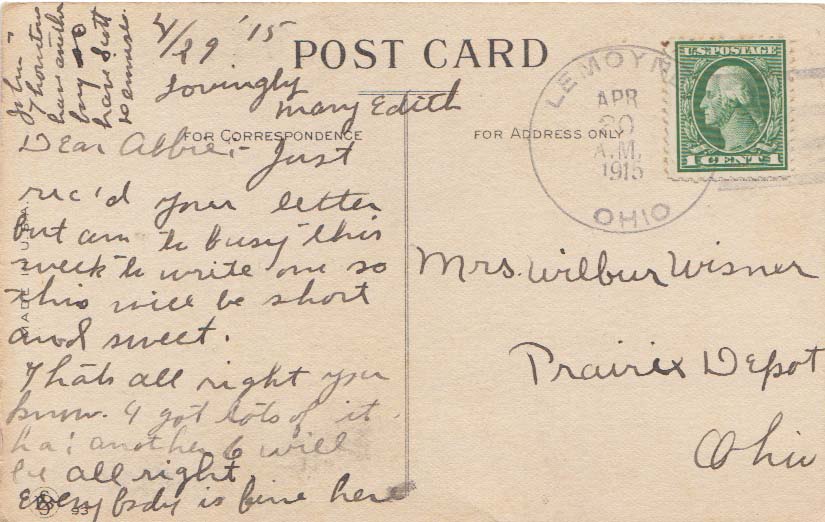 4/29 '15
POST CARD
Lovingly
Mary Edith
FOR CORRESPONDENCE
FOR ADDRESS ONLY
Dear Abbie;- Just
rec'd your letter
but am to busy this
week to write one so
this will be short
and sweet.
Thats all right you
know. I got lots of it
ha! another 6 will
be all right.
Everybody is fine here
John
have another
boy
have Scott
MADE IN U.S.A.
93
LEMOYNE
APR
30
A.M.
1915
OHIO
U.S. POSTAGE
1 CENT 1
Mrs. Wilbur Wisner
Prairie Depot
Ohio